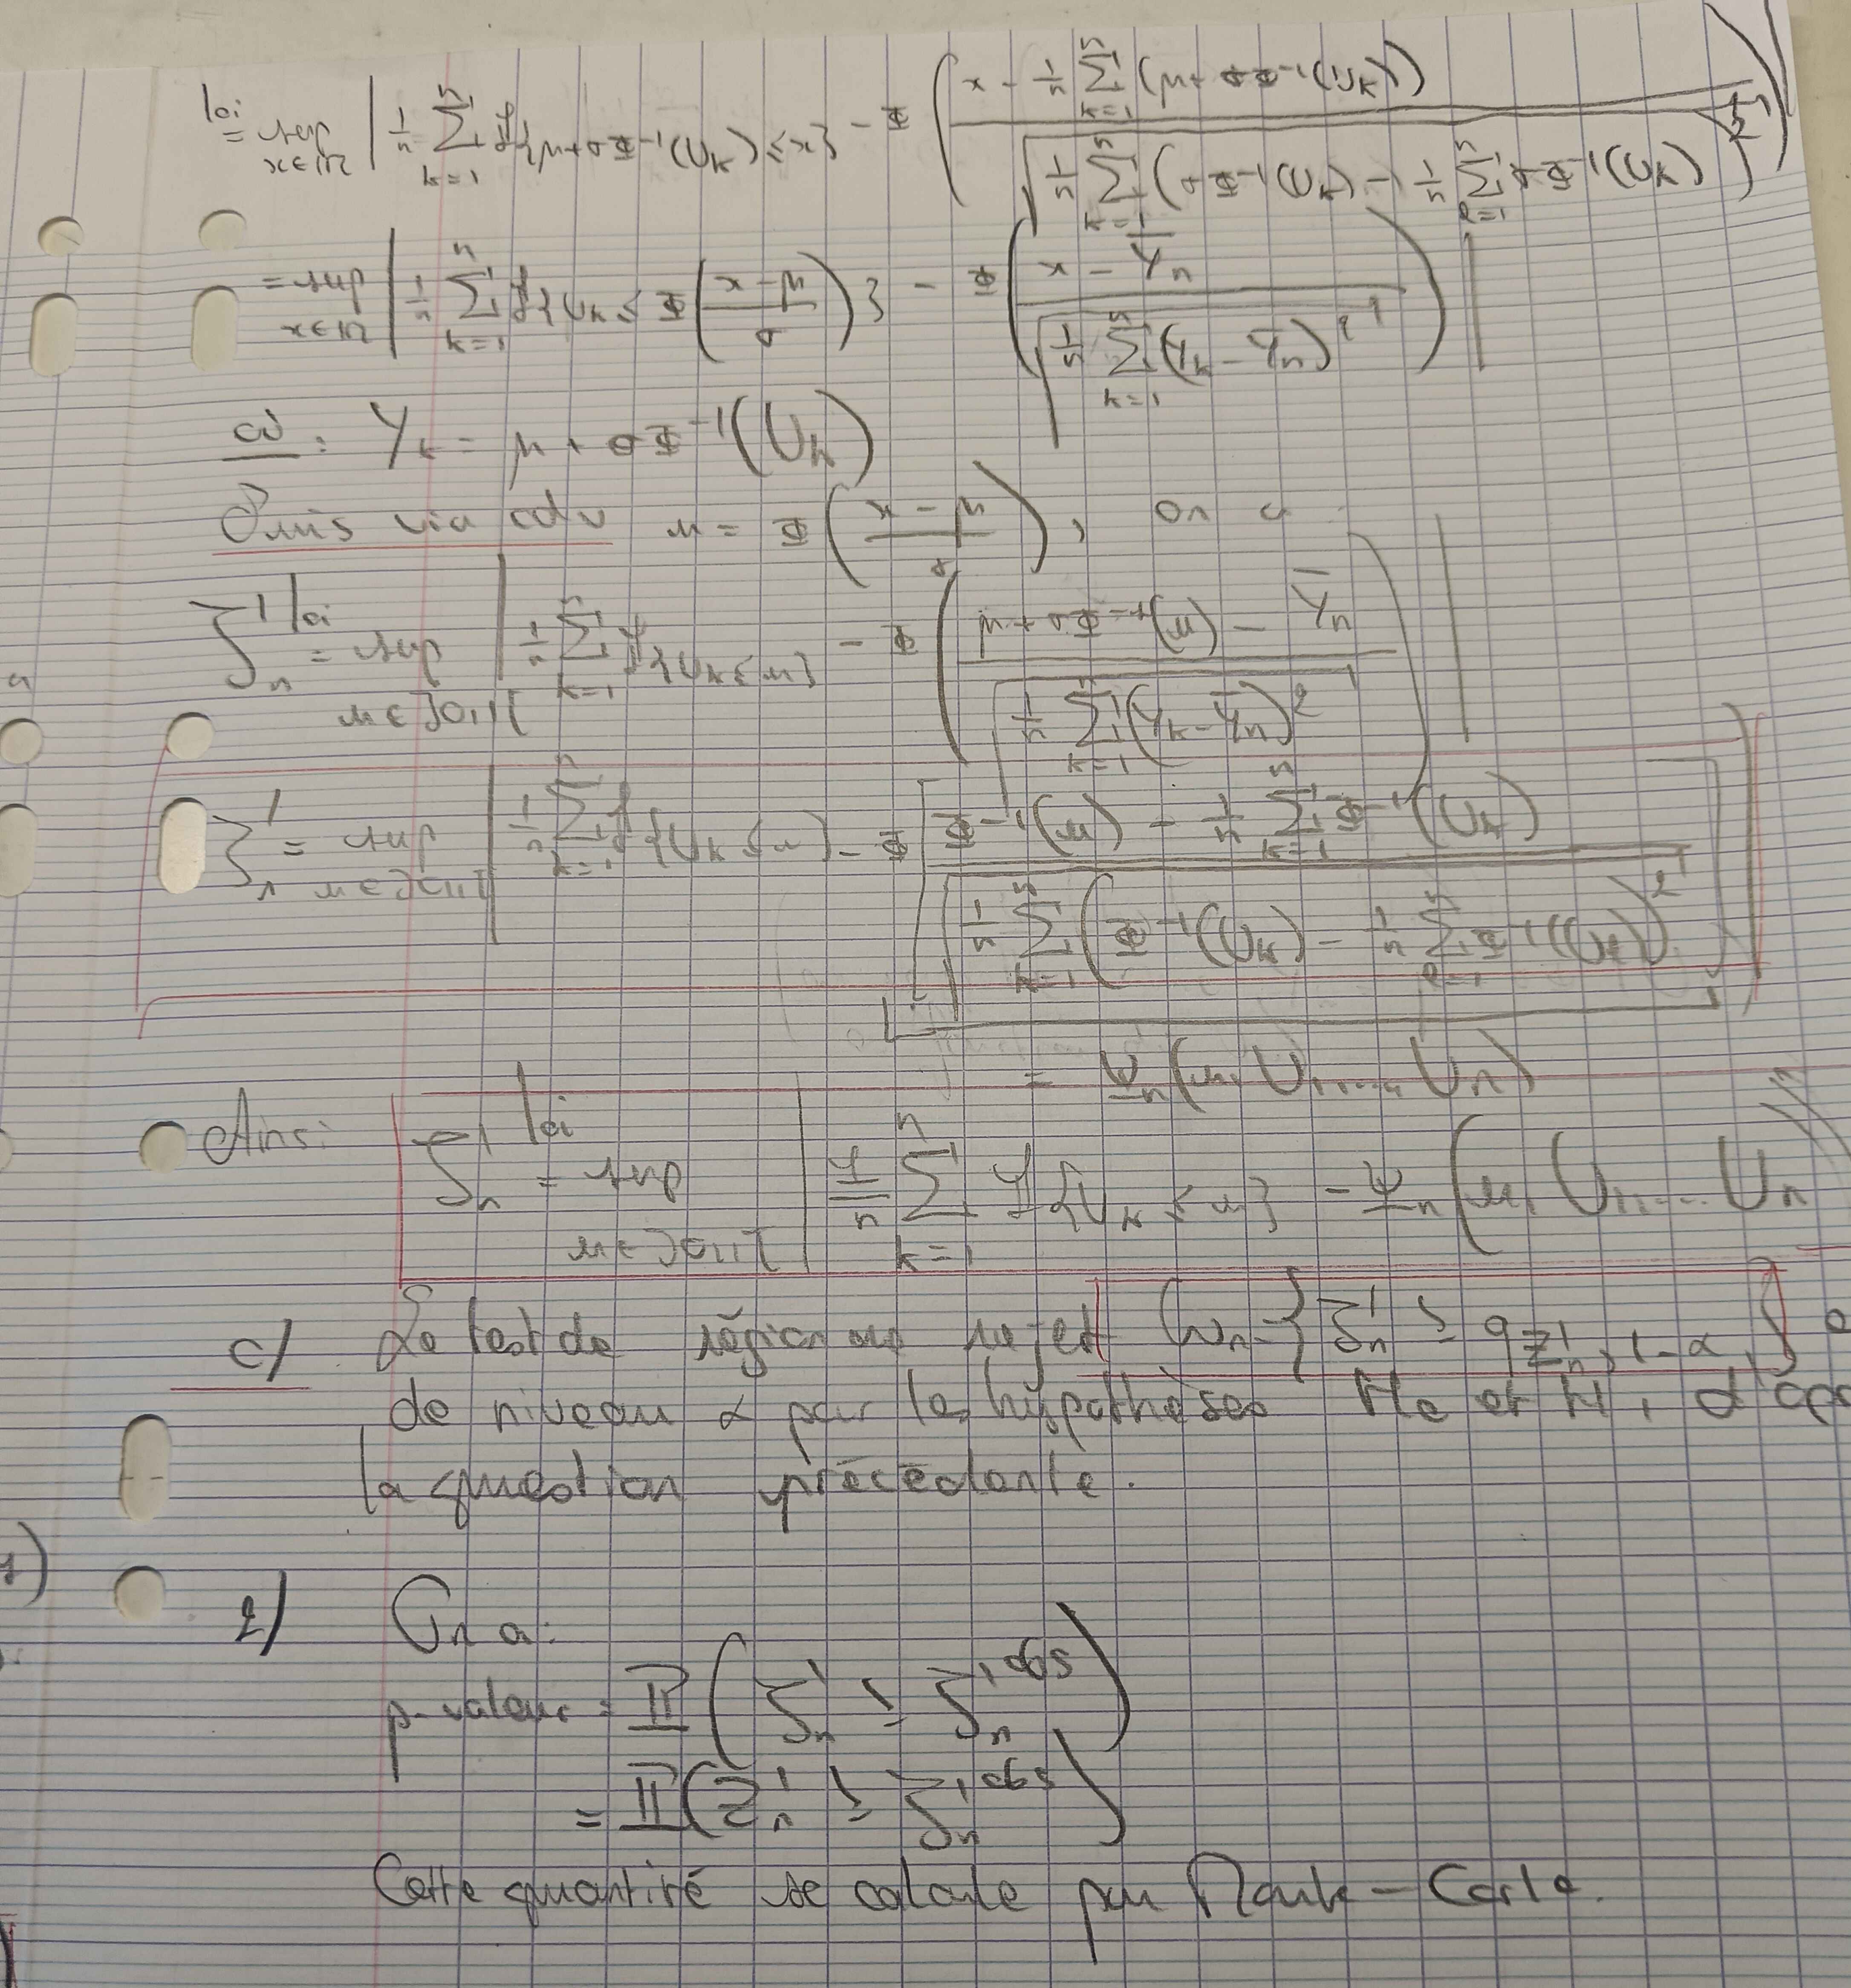 loi = sup x∈ℝ | 1/n ∑_{k=1}^n 𝟙{μ+σΦ⁻¹(U_k) ≤ x} − Φ( (x − 1/n ∑_{k=1}^n (μ+σΦ⁻¹(U_k))) / √(1/n ∑_{k=1}^n (σΦ⁻¹(U_k) − 1/n ∑_{l=1}^n σΦ⁻¹(U_k))²) )
= sup x∈ℝ | 1/n ∑_{k=1}^n 𝟙{U_k ≤ Φ((x−μ)/σ)} − Φ( (x − Ȳ_n) / √(1/n ∑_{k=1}^n (Y_k − Ȳ_n)²) ) |
où : Y_k = μ + σΦ⁻¹(U_k)
Puis via cdv u = Φ((x−μ)/σ), on a
ζ¹_n loi = sup u∈]0,1[ | 1/n ∑_{k=1}^n 𝟙{U_k ≤ u} − Φ( (μ + σΦ⁻¹(u) − Ȳ_n) / √(1/n ∑_{k=1}^n (Y_k − Ȳ_n)²) ) |
ζ¹_n = sup u∈]0,1[ | 1/n ∑_{k=1}^n 𝟙{U_k ≤ u} − Φ[ (Φ⁻¹(u) − 1/n ∑_{k=1}^n Φ⁻¹(U_k)) / √(1/n ∑_{k=1}^n (Φ⁻¹(U_k) − 1/n ∑_{l=1}^n Φ⁻¹(U_l))²) ] |
= Ψ_n(u, U_1, ..., U_n)
Ainsi ζ¹_n loi = sup u∈]0,1[ | 1/n ∑_{k=1}^n 𝟙{U_k ≤ u} − Ψ_n(u, U_1, ... U_n
c) Le test de région de rejet W_n = { ζ¹_n ≥ q_{Z¹_n, 1−α} }
de niveau α pour les hypothèses H0 et H1, d'ap
la question précédante.
2) On a:
p-valeur = ℙ( ζ¹_n ≥ ζ¹_n^{obs} )
= ℙ( Z¹_n ≥ ζ¹_n^{obs} )
Cette quantité se calcule par Monte-Carlo.